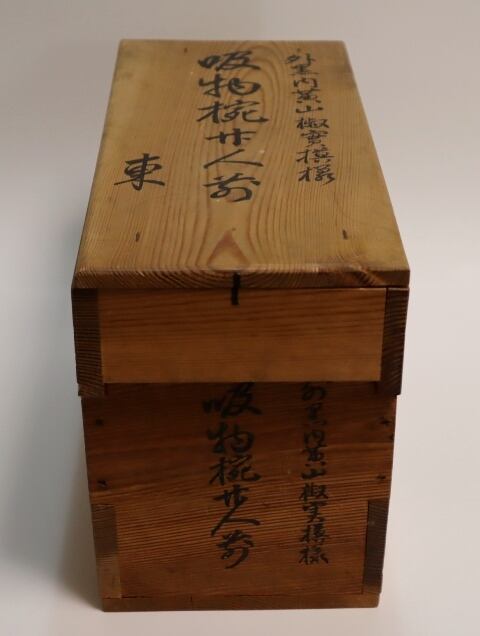 外黒内黄山椒實模様
吸物椀廿人前
東
外黒内黄山椒実模様
吸物椀廿人前